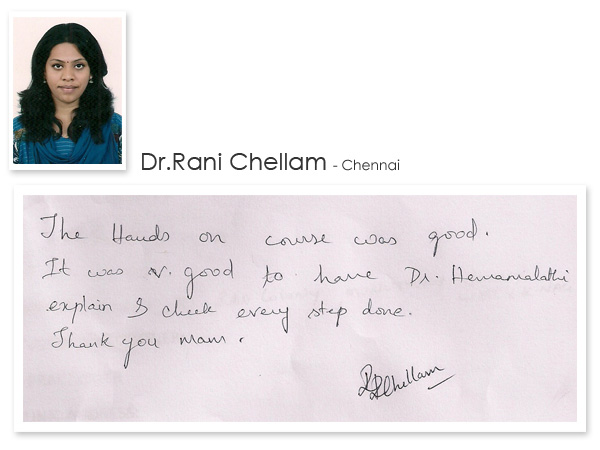 Dr.Rani Chellam - Chennai
The Hands on course was good.
It was v. good to have Dr. Hemamalathi
explain & check every step done.
Thank you mam.
RChellam